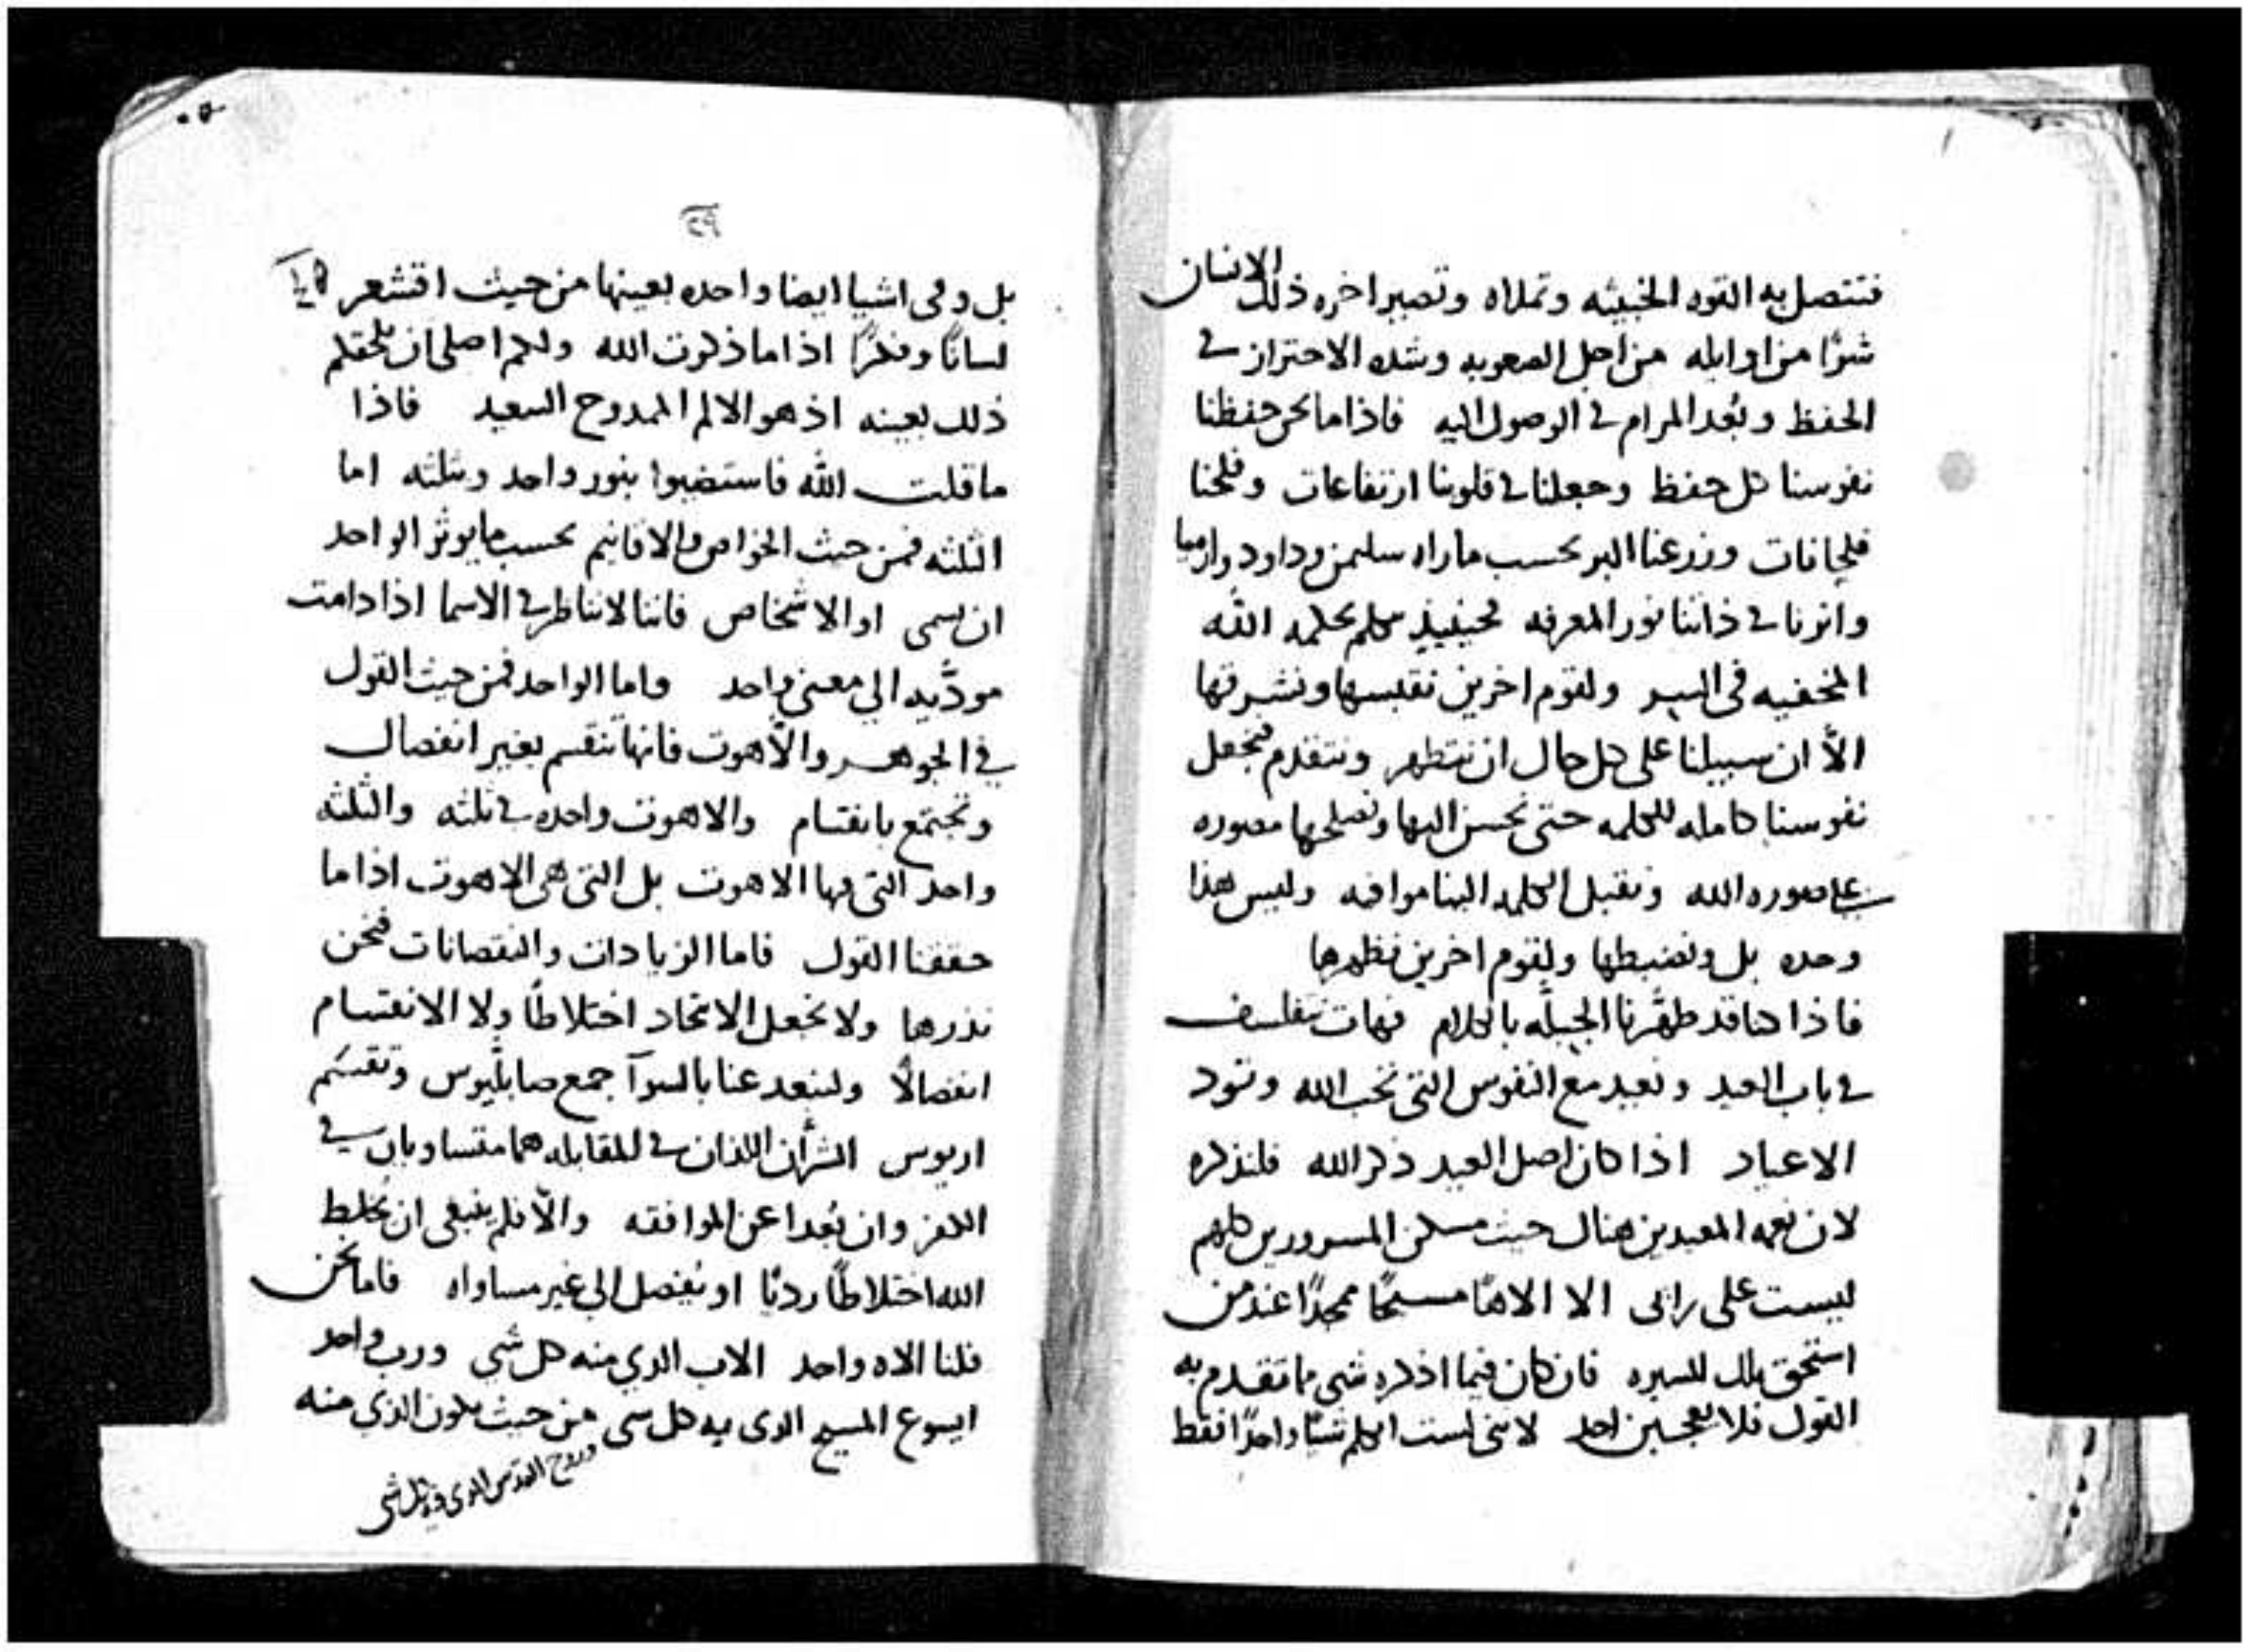 فتتصل به القوه الخبيثه وتملاه وتصير اخره ذلك الانسان
شرًا من اوايله من اجل الصعوبه وشده الاحتراز في
الحفظ وبُعد المرام في الوصول اليه فاذا ما نحن حفظنا
نفوسنا كل حفظ وجعلنا في قلوبنا ارتفاعات وفلحنا
فلحانات وزرعنا البر بحسب ما راه سليمن وداود وارميا
وانرنا في ذاتنا نور المعرفه فحينيذٍ نتكلم بحكمه الله
المخفيه في السر ولقوم اخرين نقبسها ونشرقها
الاَّ ان سبيلنا على كل حال ان نتطهر ونتقدم فنجعل
نفوسنا كامله للكلمه حتى نحسن اليها ونصلحها مصوره
على صوره الله ونقبل الكلمه الينا موافيه وليس هذا
وحده بل ونضبطها ولقوم اخرين نظهرها
فاذا كنا قد طهَّرنا الجبله بالكلام فهات نتفلسف
في باب العيد ونعيد مع النفوس التي تحب الله وتود
الاعياد اذا كان اصل العيد ذكر الله فلنذكره
لان نغمه المعيدين هناك حيث مسكن المسرورين كلهم
ليست على رايي الا الاهًا مسبحًا ممجدًا عند من
استحق تلك السيره فان كان فيما اذكره شي ما تقدم به
القول فلا يعجبن احد لانني لست اتكلم شيًا واحدًا فقط
٢٩
بل وفي اشيا ايضا واحده بعينها من حيث اقشعر
لسانًا وفكرًا اذا ما ذكرت الله ولكم اصلي ان يلحقكم
ذلك بعينه اذ هو الالم الممدوح السعيد فاذا
ما قلت الله فاستضيوا بنور واحد وثلثه اما
الثلثه فمن حيث الخواص والاقانيم بحسب ما يوثر الواحد
ان يسمي او الاشخاص فاننا لا نناظر في الاسما اذا دامت
مودّيه الي معنى واحد واما الواحد فمن حيث القول
في الجوهر والاَّهوت فانها تنقسم بغير انفصال
وتجتمع بانقسام والاهوت واحده في ثلثه والثلثه
واحد التي فيها الاهوت بل التي هي الاهوت اذا ما
حققنا القول فاما الزيادات والنقصانات فنحن
نذرها ولا نجعل الاتحاد اختلاطًا ولا الانقسام
انفصالًا وليبعد عنا بالسوآ جمع صابليوس وتقسُّم
اريوس الشرّان اللذان في المقابله هما متساويان في
الكفر وان بُعدا عن الموافقه والاَّ فلم ينبغي ان نخلط
الله اختلاطًا رديًا او نفصل الي غير مساواه فاما نحن
فلنا الاه واحد الاب الذي منه كل شي ورب واحد
ايسوع المسيح الذي به كل شي من حيث يكون الذي منه
وروح القدس الذي فيه كل شي